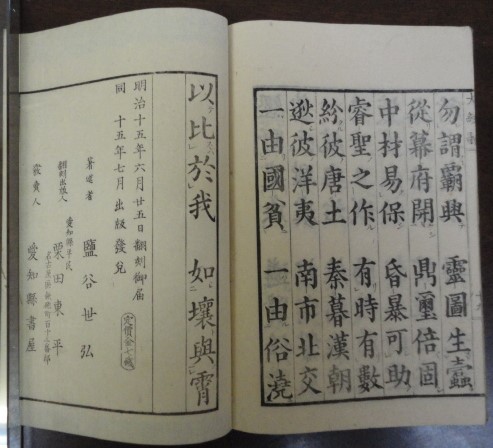 勿謂霸興 靈圖生蠹
從幕府開 鼎璽倍固
中材易保 昏暴可助
睿聖之作 有時有數
紛彼唐土 秦暮漢朝
逖彼洋夷 南市北交
一由國貧 一由俗澆
以比於我 如壤與霄
明治十五年六月廿五日翻刻御届
同 十五年七月出版發兌
定價金七錢
著述者 鹽谷世弘
翻刻出版人 愛知縣平民 栗田東平
發賣人 愛知縣書屋